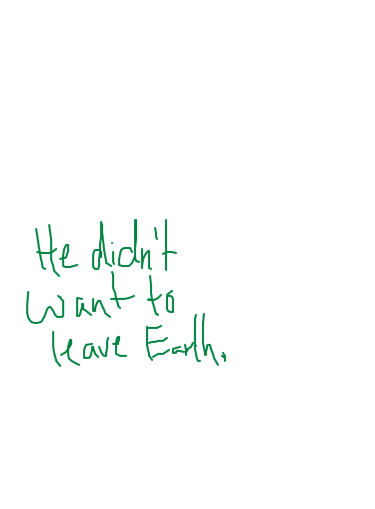 He didn't
want to
leave Earth.